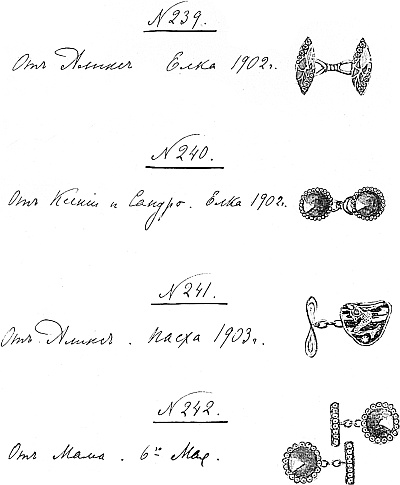 №239.
Отъ Аликсъ Елка 1902 г.
№240.
Отъ Ксеніи и Сандро. Елка 1902 г.
№241.
Отъ Аликсъ. Пасха 1903 г.
№242.
Отъ Мама. 6го Мая.